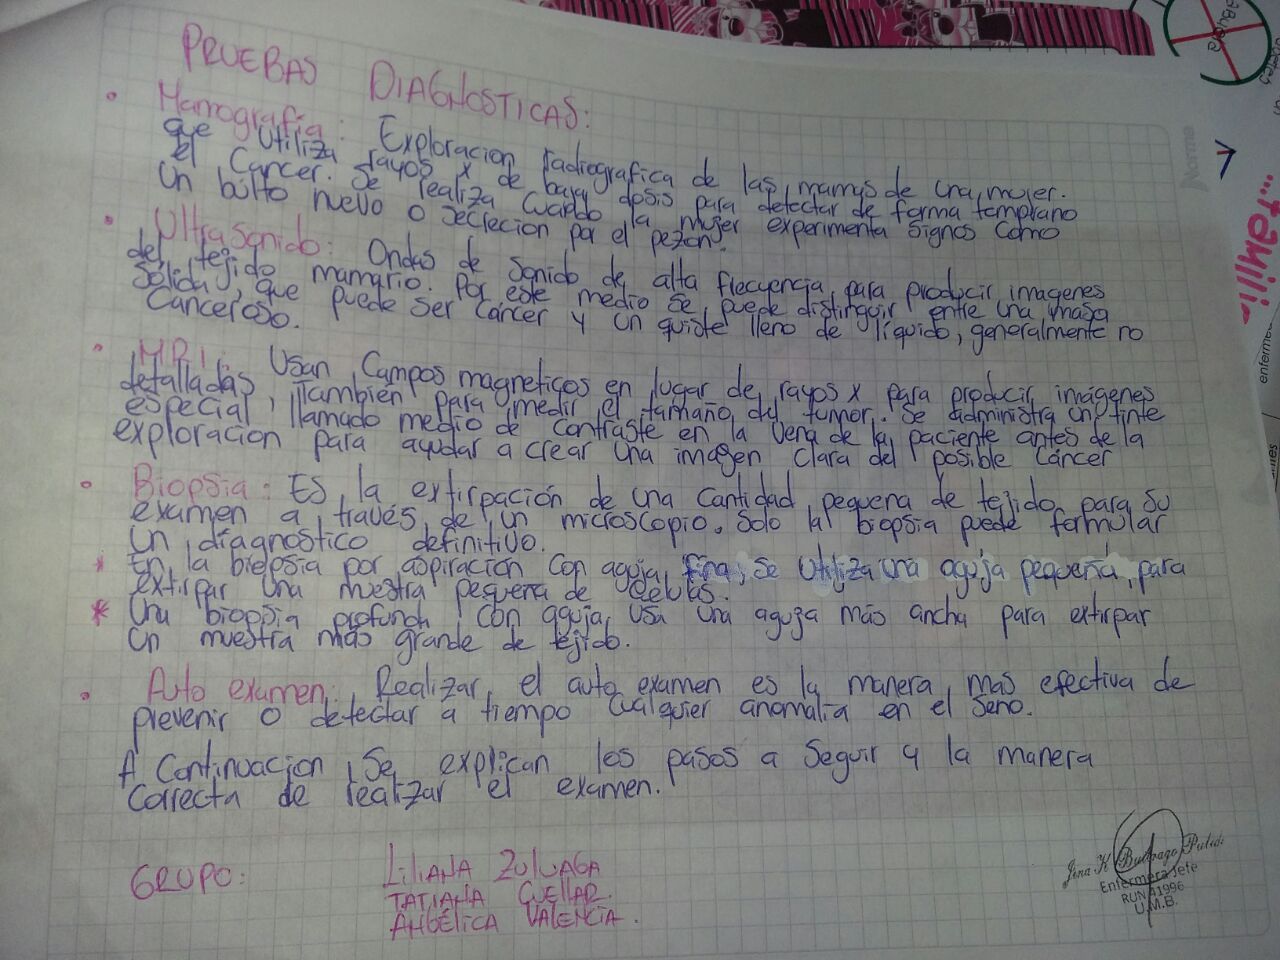 PRUEBAS DIAGNOSTICAS:
• Mamografia: Exploracion radiografica de las mamas de una mujer.
que utiliza rayos x de baja dosis para detectar de forma temprano
el cancer. Se realiza cuando la mujer experimenta signos como
un bulto nuevo o secrecion por el pezon.
• Ultrasonido: Ondas de sonido de alta frecuencia, para producir imagenes
del tejido mamario. Por este medio se puede distinguir entre una masa
solida, que puede ser cáncer y un quiste lleno de líquido, generalmente no
Canceroso.
• MRI: Usan Campos magneticos en lugar de rayos x para producir imágenes
detalladas, Tambien para medir el tamaño del tumor. Se administra un tinte
especial, llamado medio de contraste en la vena de la paciente antes de la
exploracion para ayudar a crear una imagen clara del posible cáncer
• Biopsia: Es la extirpación de una cantidad pequeña de tejido para su
examen a través de un microscopio. Solo la biopsia puede formular
un diagnostico definitivo.
* En la biopsia por aspiracion con aguja fina, se utiliza una aguja pequeña, para
extirpar una muestra pequeña de celulas.
* Una biopsia profunda con aguja, usa una aguja más ancha para extirpar
un muestra mas grande de tejido.
• Auto examen: Realizar el auto examen es la manera mas efectiva de
prevenir o detectar a tiempo cualquier anomalia en el seno.
A Continuacion, Se explican los pasos a Seguir y la manera
Correcta de realizar el examen.
GRUPO: LILIANA ZULUAGA
TATIANA CUELLAR.
ANGÉLICA VALENCIA.
Enfermera Jefe
RUN 41996
U.M.B.
Norma